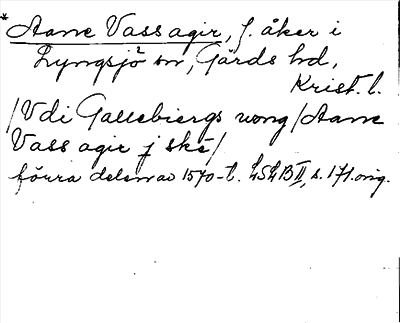 * Aame Vass agir, f. åker i
Lyngsjö sn, Gärds hd,
Krist. l.
/Vdi Gallebiergs wong/Aame
Vass agir j ske/
förra delen av 1570-t. LSLB II, s. 171. orig.